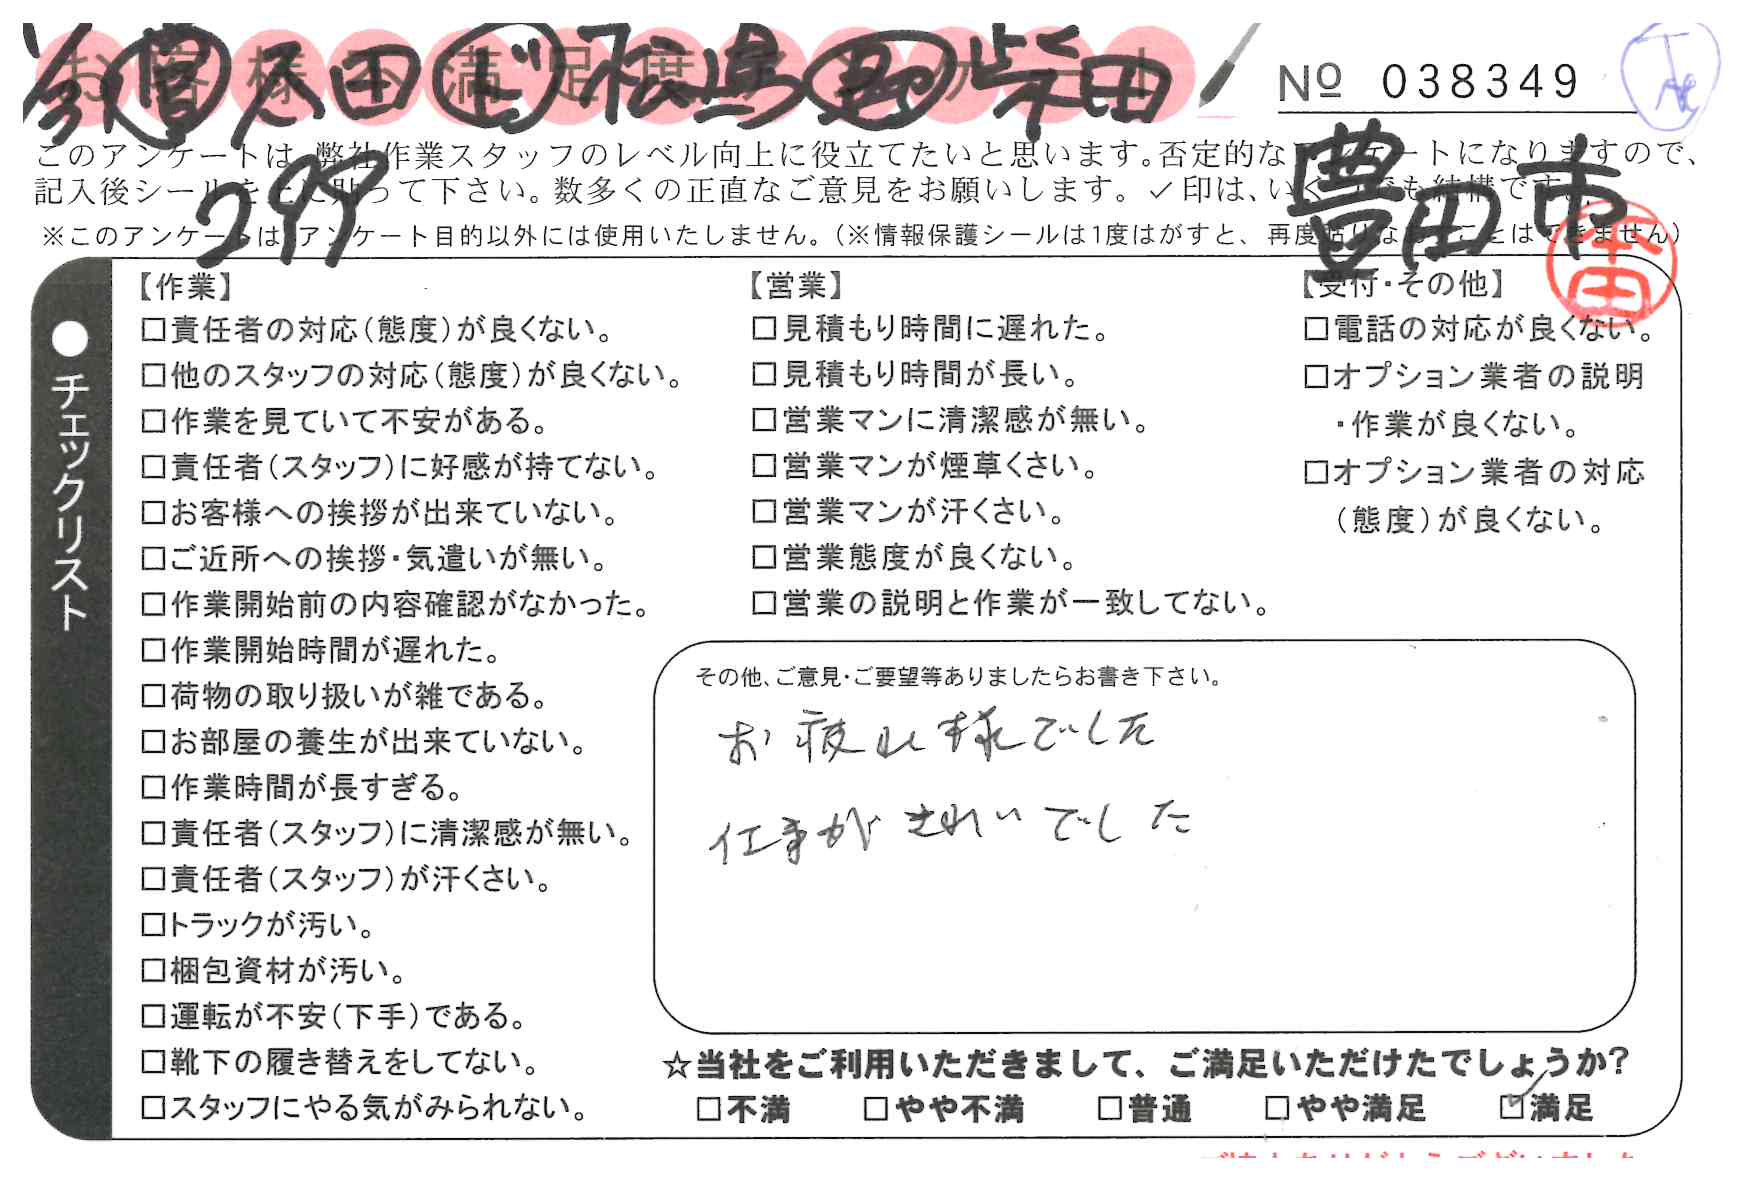 お客様不満足度アンケート
久田 松島 柴田
№ 038349
このアンケートは、弊社作業スタッフのレベル向上に役立てたいと思います。否定的なアンケートになりますので、
記入後シールを上に貼って下さい。数多くの正直なご意見をお願いします。✓印は、いくつでも結構です。
299 豊田市
※このアンケートは、アンケート目的以外には使用いたしません。(※情報保護シールは1度はがすと、再度貼りなおすことはできません)
●チェックリスト
【作業】
□責任者の対応(態度)が良くない。
□他のスタッフの対応(態度)が良くない。
□作業を見ていて不安がある。
□責任者(スタッフ)に好感が持てない。
□お客様への挨拶が出来ていない。
□ご近所への挨拶・気遣いが無い。
□作業開始前の内容確認がなかった。
□作業開始時間が遅れた。
□荷物の取り扱いが雑である。
□お部屋の養生が出来ていない。
□作業時間が長すぎる。
□責任者(スタッフ)に清潔感が無い。
□責任者(スタッフ)が汗くさい。
□トラックが汚い。
□梱包資材が汚い。
□運転が不安(下手)である。
□靴下の履き替えをしてない。
□スタッフにやる気がみられない。
【営業】
□見積もり時間に遅れた。
□見積もり時間が長い。
□営業マンに清潔感が無い。
□営業マンが煙草くさい。
□営業マンが汗くさい。
□営業態度が良くない。
□営業の説明と作業が一致してない。
【受付・その他】
□電話の対応が良くない。
□オプション業者の説明
・作業が良くない。
□オプション業者の対応
(態度)が良くない。
その他、ご意見・ご要望等ありましたらお書き下さい。
お疲れ様でした
仕事がきれいでした
☆当社をご利用いただきまして、ご満足いただけたでしょうか?
□不満 □やや不満 □普通 □やや満足 ☑満足